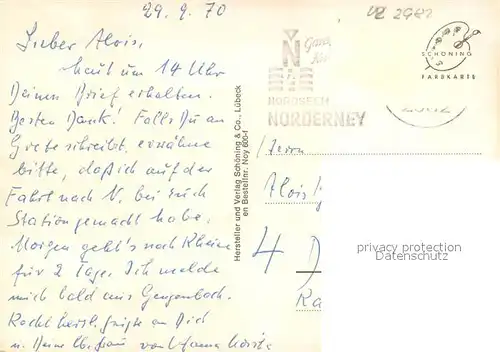 29. 9. 70
Lieber Alois,
heut um 14 Uhr
Deinen Brief erhalten.
Besten Dank! Falls Du an
Grete schreibst, erwähne
bitte, daß ich auf der
Fahrt nach N. bei Euch
Station gemacht habe.
Morgen geht's nach Rheine
für 2 Tage. Ich melde
mich bald aus Gengenbach.
Recht herzl. Grüße an Dich
u. Deine von
Hersteller und Verlag Schöning & Co., Lübeck
en Bestellnr. Noy 600-f
N
NORDSEEH
NORDERNEY
SCHÖNING
FARBKARTE
Herrn
Alois
4
privacy protection
Datenschutz